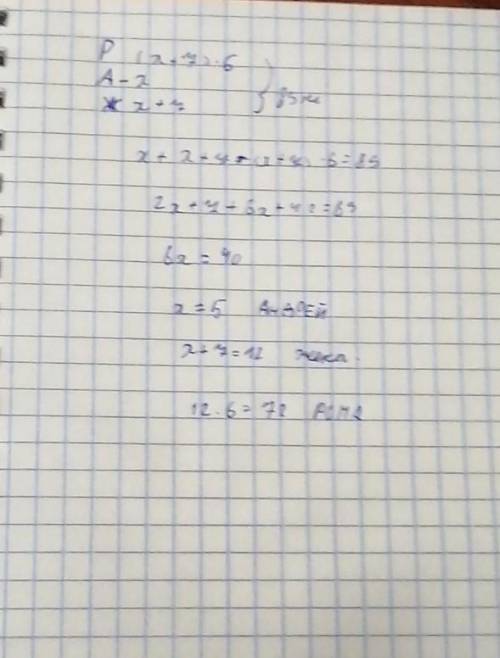 Р (x + 7) · 6
А - x
Ж x + 7 } 89 км
x + x + 7 + (x + 7) · 6 = 89
2x + 7 + 6x + 42 = 89
8x = 40
x = 5 АНДРЕЙ
x + 7 = 12 Жека.
12 · 6 = 72 РОМА